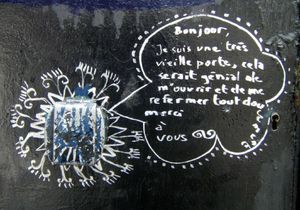 Bonjour,
Je suis une très
vieille porte, cela
serait génial de
m'ouvrir et de me
refermer tout doux
merci
à
vous